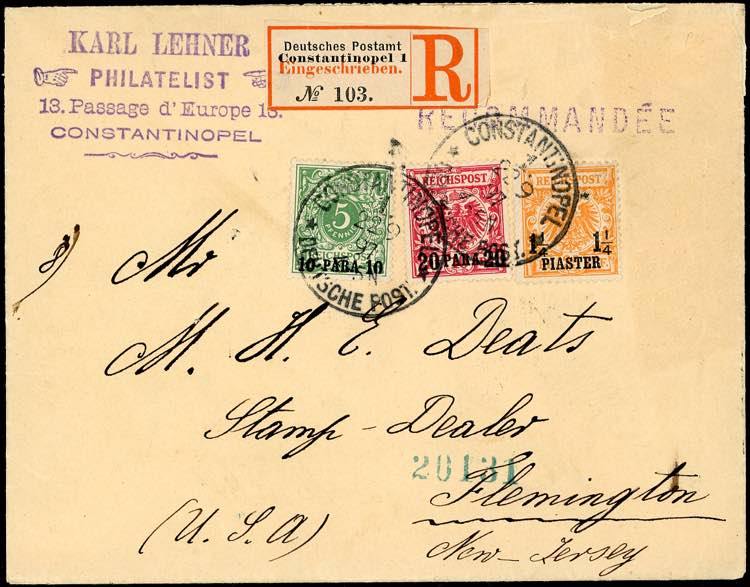 KARL LEHNER
PHILATELIST
13. Passage d'Europe 13.
CONSTANTINOPEL
Deutsches Postamt
Constantinopel 1
Eingeschrieben.
№ 103.
R
RECOMMANDÉE
CONSTANTINOPEL
5
PFENNIG
10 PARA 10
REICHSPOST
20 PARA 20
REICHSPOST
1¼ 1¼
PIASTER
CONSTANTINOPEL
DEUTSCHE POST.
Mr
M. H. E. Deats
Stamp-Dealer
20131
Flemington
(U.S.A)
New-Jersey